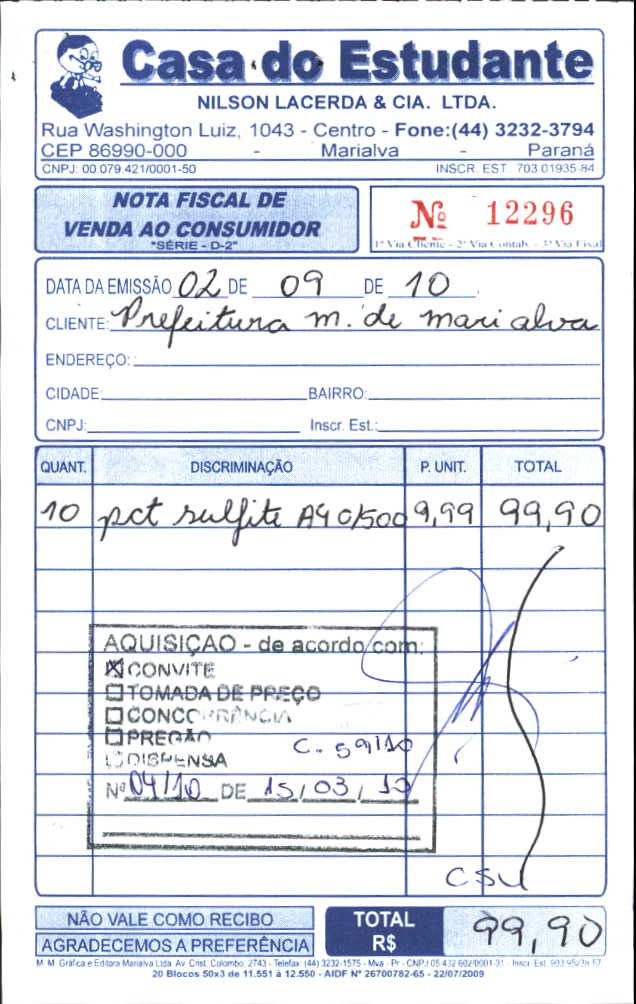 Casa do Estudante
NILSON LACERDA & CIA. LTDA.
Rua Washington Luiz, 1043 - Centro - Fone:(44) 3232-3794
CEP 86990-000 - Marialva - Paraná
CNPJ: 00.079.421/0001-50 INSCR. EST.: 703.01935-84
NOTA FISCAL DE
VENDA AO CONSUMIDOR
"SÉRIE - D-2"
Nº 12296
1ª Via Cliente - 2ª Via Contab. - 3ª Via Fixa
DATA DA EMISSÃO 02 DE 09 DE 10
CLIENTE: Prefeitura m. de marialva
ENDEREÇO:
CIDADE: BAIRRO:
CNPJ: Inscr. Est.:
QUANT. DISCRIMINAÇÃO P. UNIT. TOTAL
10 pct sulfite A4 c/500 9,99 99,90
AQUISIÇAO - de acordo com:
CONVITE
TOMADA DE PREÇO
CONCORRÊNCIA
PREGÃO
C. 59/10
DISPENSA
Nº 04/10 DE 15/03/10
CSU
NÃO VALE COMO RECIBO
AGRADECEMOS A PREFERÊNCIA
TOTAL R$ 99,90
M. M. Gráfica e Editora Marialva Ltda. Av. Crist. Colombo, 2743 - Telefax: (44) 3232-1575 - Mva - Pr - CNPJ 05.432.602/0001-31 Inscr. Est.
20 Blocos 50x3 de 11.551 à 12.550 - AIDF Nº 26700782-65 - 22/07/2009